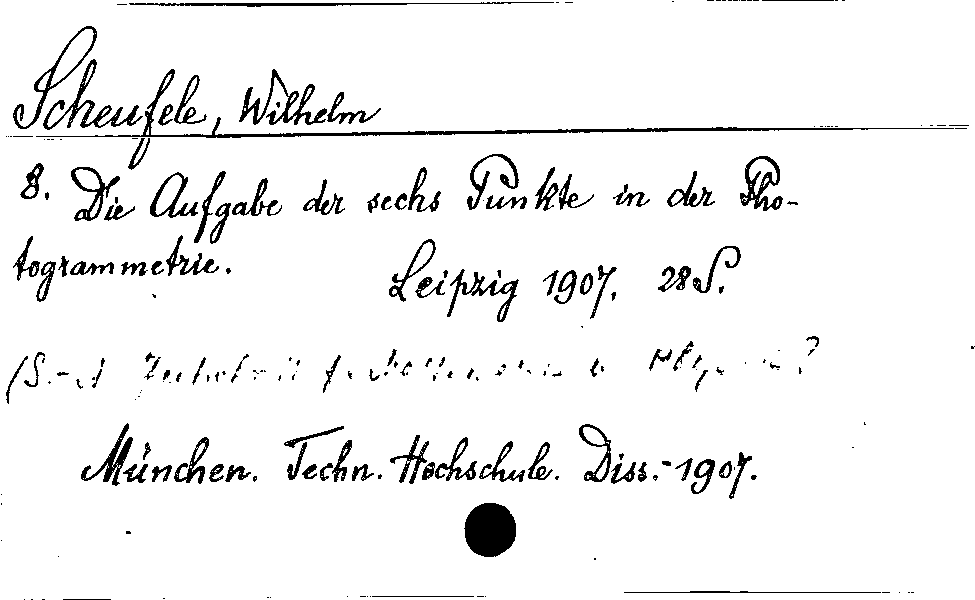 Scheufele, Wilhelm
8. Die Aufgabe der sechs Punkte in der Pho-
togrammetrie.
Leipzig 1907. 28 S.
München. Techn. Hochschule. Diss.-1907.